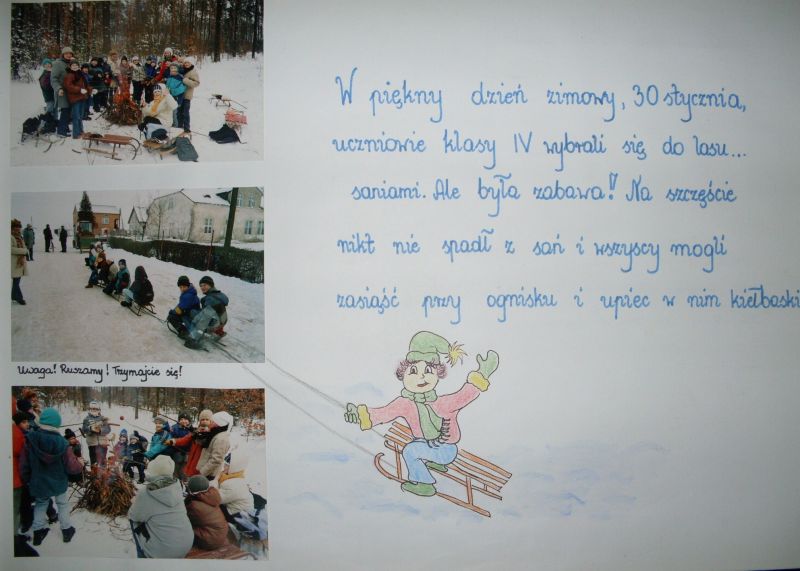 W piękny dzień zimowy, 30 stycznia,
uczniowie klasy IV wybrali się do lasu...
saniami. Ale była zabawa! Na szczęście
nikt nie spadł z sań i wszyscy mogli
zasiąść przy ognisku i upiec w nim kiełbaski
Uwaga! Ruszamy! Trzymajcie się!